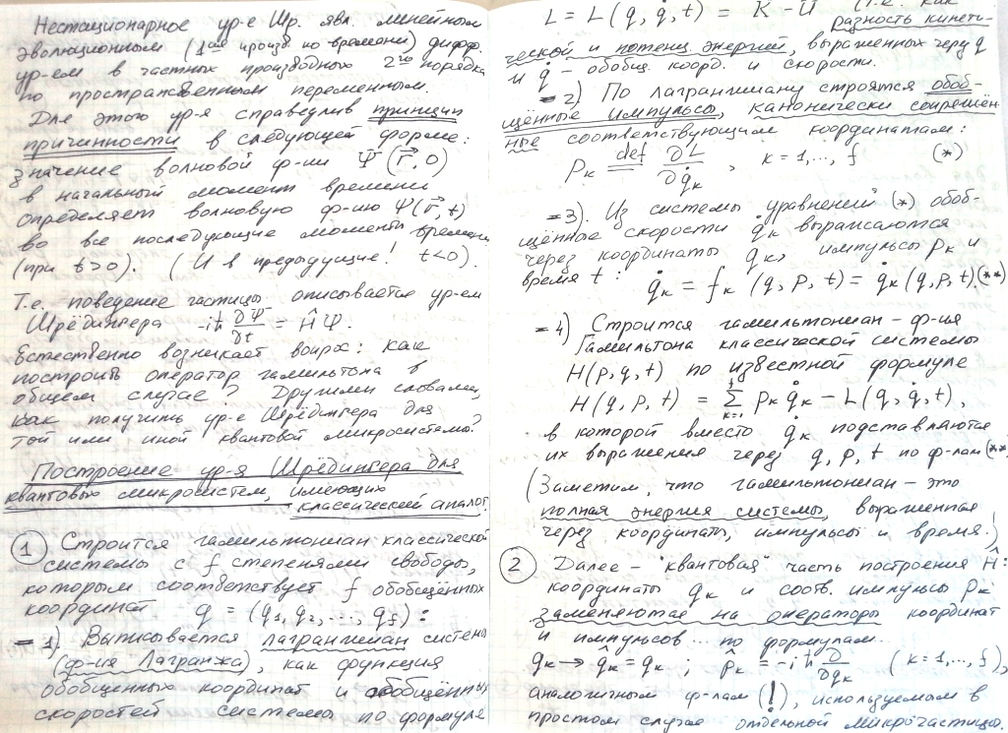 Нестационарное ур-е Шр. явл. линейным
эволюционным (1ая произв. по времени) дифф.
ур-ем в частных производных 2го порядка
по пространственным переменным.
Для этого ур-я справедлив принцип
причинности в следующей форме:
значение волновой ф-ии Ψ(r⃗,0)
в начальный момент времени
определяет волновую ф-ию Ψ(r⃗,t)
во все последующие моменты времени
(при t>0). (И в предыдущие! t<0).
Т.е. поведение частицы описывается ур-ем
Шрёдингера -iħ ∂Ψ/∂t = ĤΨ.
Естественно возникает вопрос: как
построить оператор гамильтона в
общем случае? Другими словами,
как получить ур-е Шрёдингера для
той или иной квантовой микросистемы?
Построение ур-я Шрёдингера для
квантовых микросистем, имеющих
классический аналог.
1 Строится гамильтониан классической
системы с f степенями свободы,
которым соответствует f обобщённых
координат q = (q₁, q₂, ..., q_f):
- 1). Выписывается лагранжиан системы
(ф-ия Лагранжа), как функция
обобщенных координат и обобщённых
скоростей системы по формуле
L = L(q, q̇, t) = K - U (т.е. как
разность кинети-
ческой и потенц. энергий, выраженных через q
и q̇ - обобщ. коорд. и скорости.
- 2) По лагранжиану строятся обоб-
щённые импульсы, канонически сопряжён-
ные соответствующим координатам:
p_k def= ∂L/∂q̇_k, k = 1,..., f (*)
- 3). Из системы уравнений (*) обоб-
щённые скорости q̇_k выражаются
через координаты q_k, импульсы p_k и
время t: q̇_k = f_k (q, p, t) = q̇_k (q, p, t). (**)
- 4) Строится гамильтониан - ф-ия
Гамильтона классической системы
H(p,q,t) по известной формуле
H(q, p, t) = Σ_{k=1}^{f} p_k q̇_k - L(q, q̇, t),
в которой вместо q̇_k подставляются
их выражения через q, p, t по ф-лам (**
(Заметим, что гамильтониан - это
полная энергия системы, выраженная
через координаты, импульсы и время.)
2 Далее - "квантовая" часть построения Ĥ:
координаты q_k и соотв. импульсы p_k
заменяются на операторы координат
и импульсов ... по формулам..
q_k → q̂_k = q_k ; p̂_k = -iħ ∂/∂q_k (k=1,...,f),
аналогичным ф-лам (!), используемым в
простом случае отдельной микрочастицы.